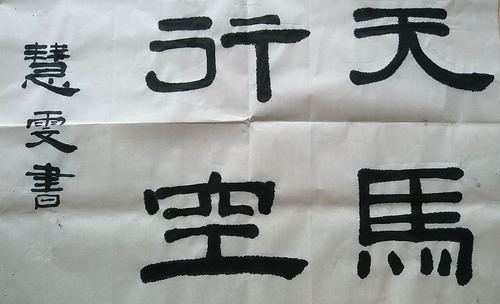 天馬
行空
慧雯書